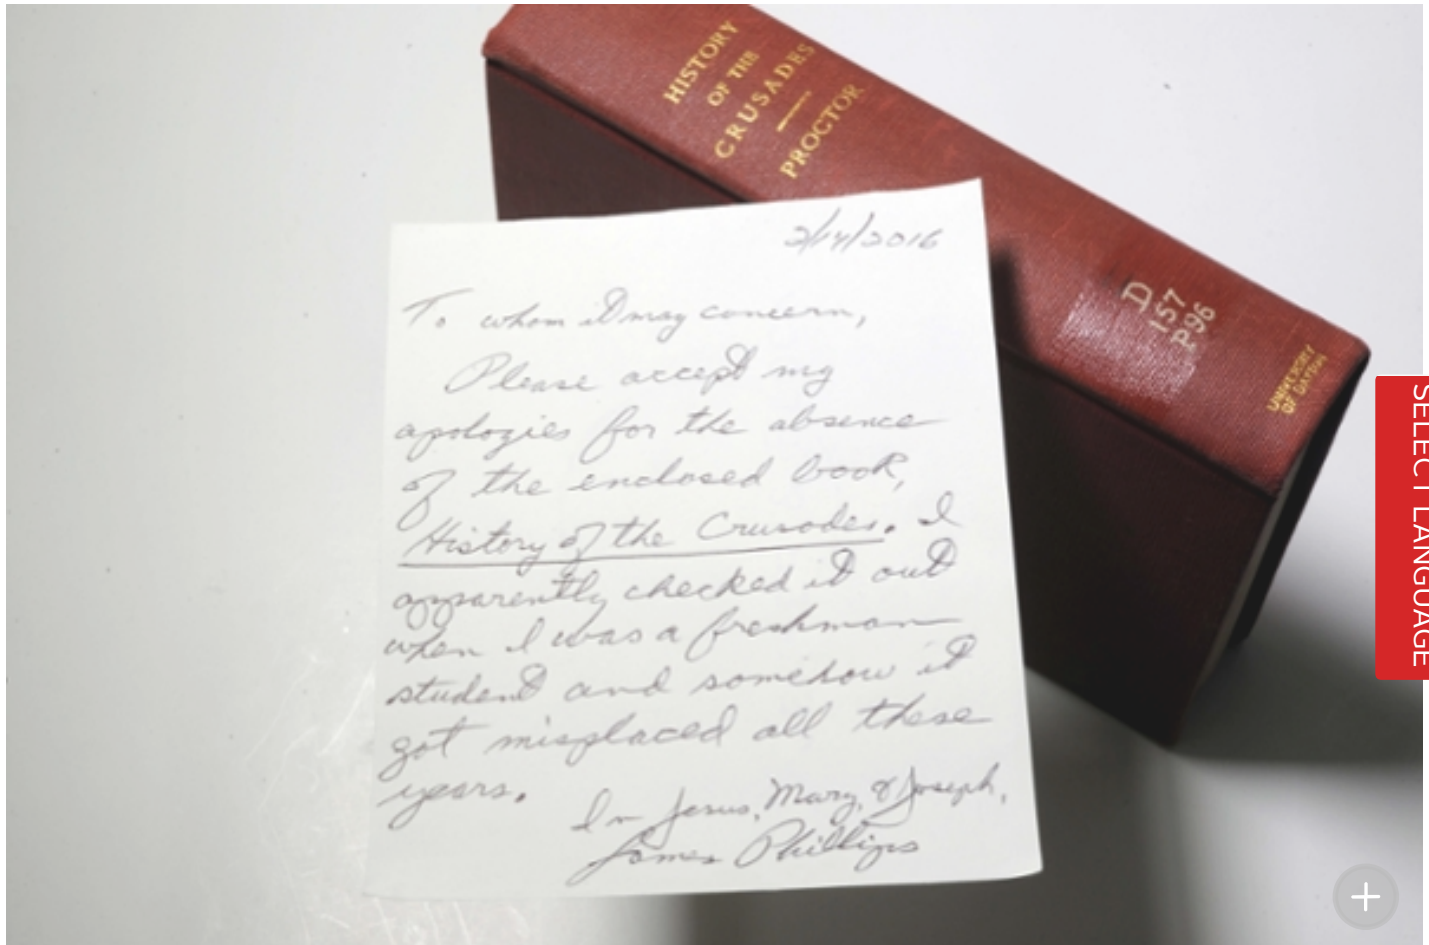 HISTORY
OF THE
CRUSADES
PROCTOR
D
157
P96
UNIVERSITY
OF DAYTON
2/14/2016
To whom it may concern,
Please accept my
apologies for the absence
of the enclosed book,
History of the Crusades. I
apparently checked it out
when I was a freshman
student and somehow it
got misplaced all these
years.
In Jesus, Mary, & Joseph,
James Phillips
SELECT LANGUAGE